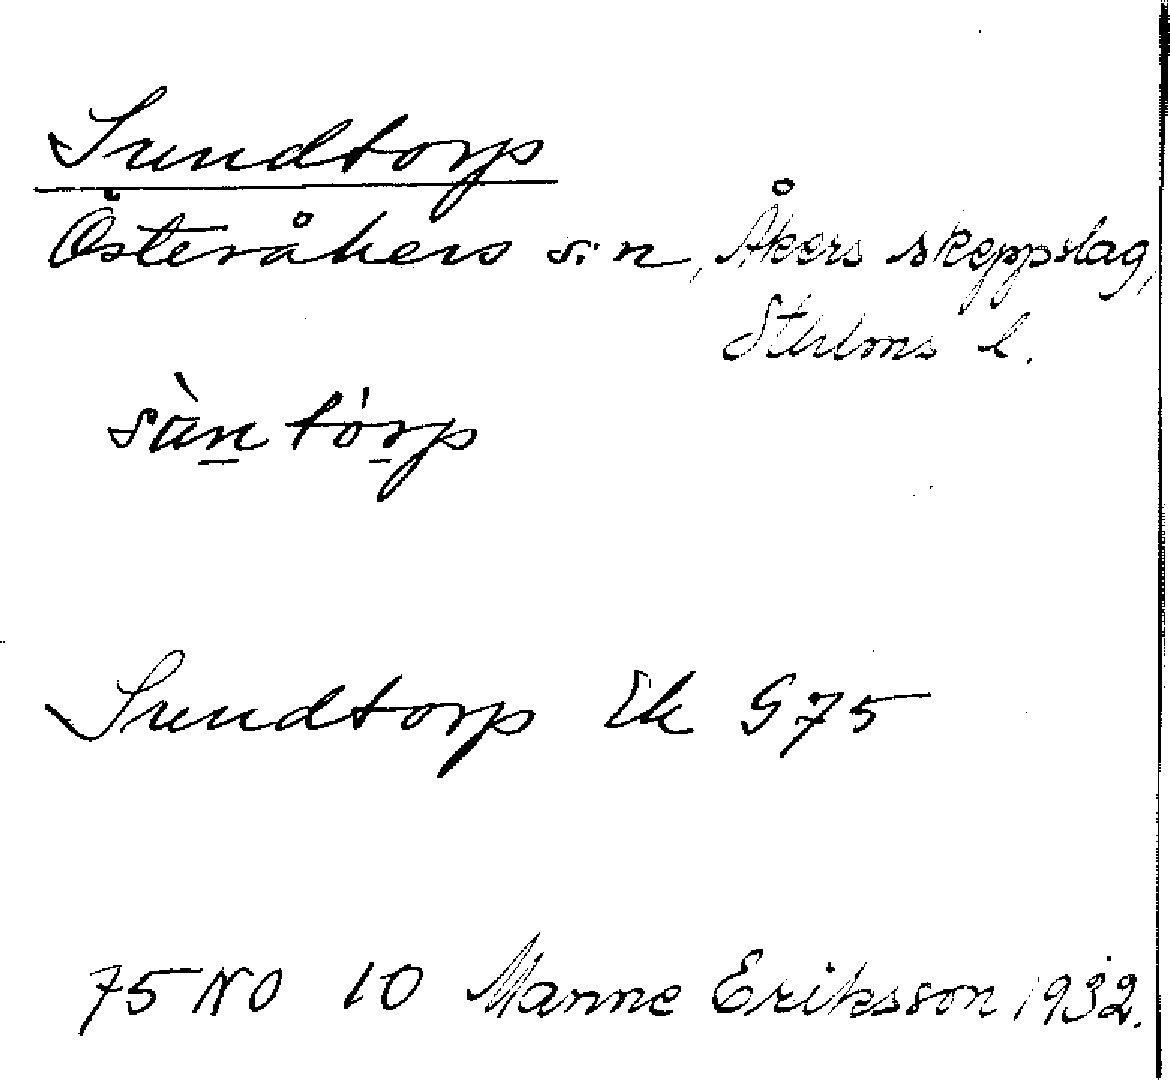 Sundtorp
Österåkers s:n, Åkers skeppslag,
Sthlms l.
sùntórp
Sundtorp Ek G75
75 NO 10 Manne Eriksson 1932.